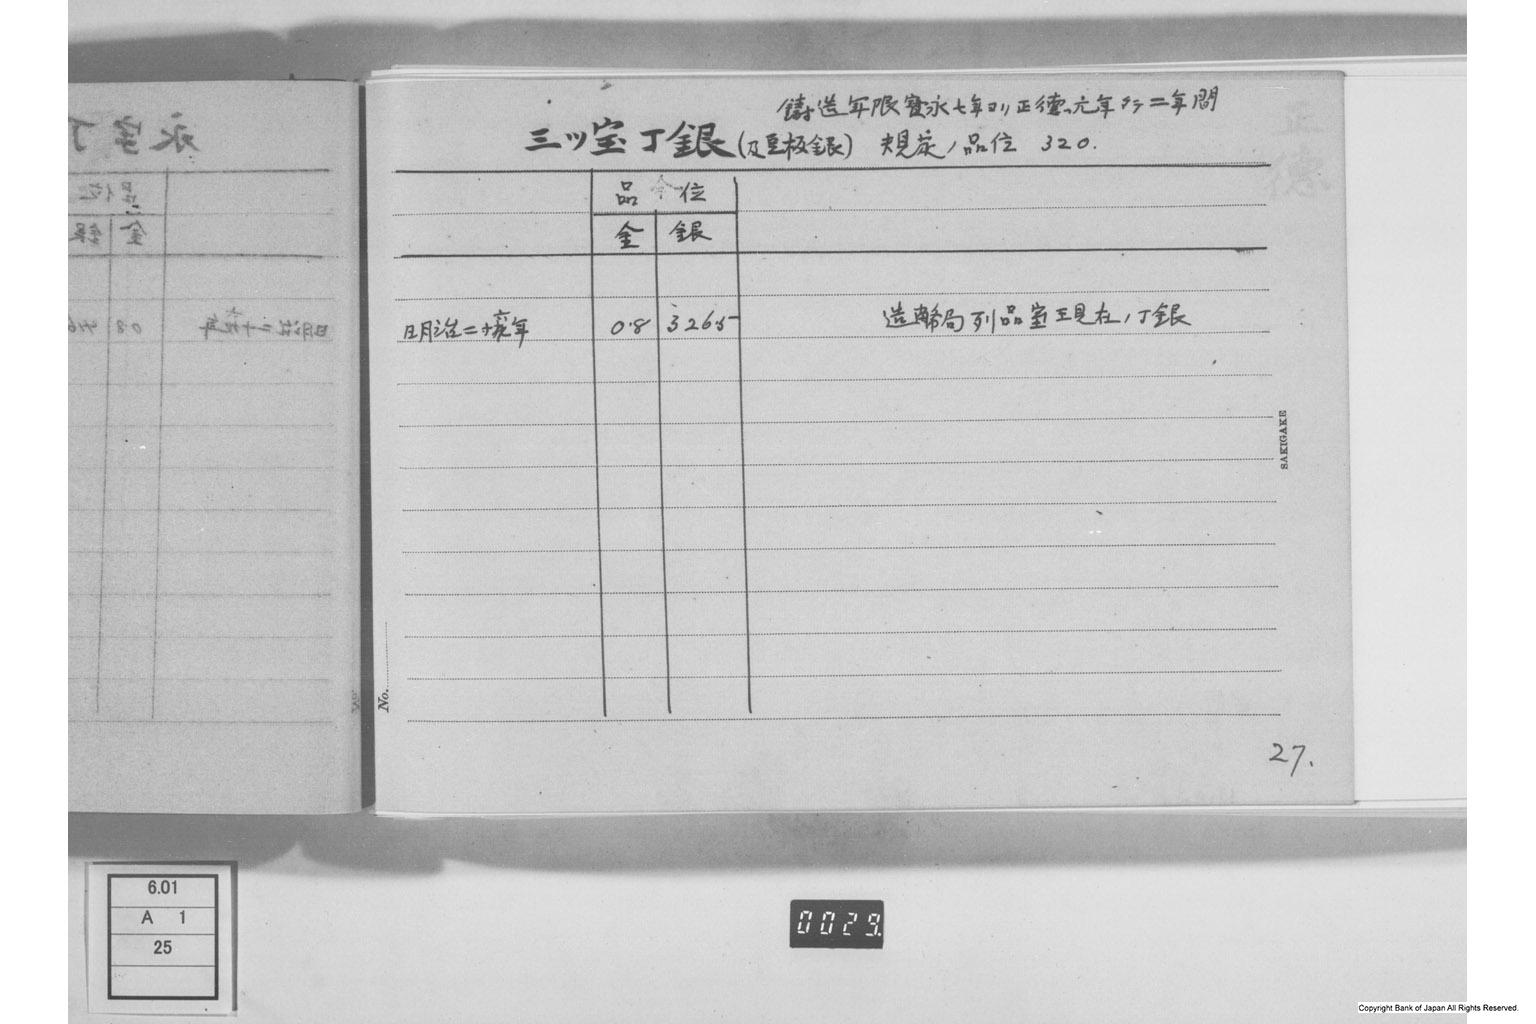 鋳造年限寳永七年ヨリ正徳元年マテ二年間
三ツ宝丁銀(及豆板銀) 規定ノ品位 320.
品 位
金 銀
明治二十六年 0.8 326.5 造幣局列品室ニ現在ノ丁銀
SAKIGAKE
No.
27.
永宝丁
品位
金 銀
明治二十六年 0.8
6.01
A 1
25
0029.
Copyright Bank of Japan All Rights Reserved.